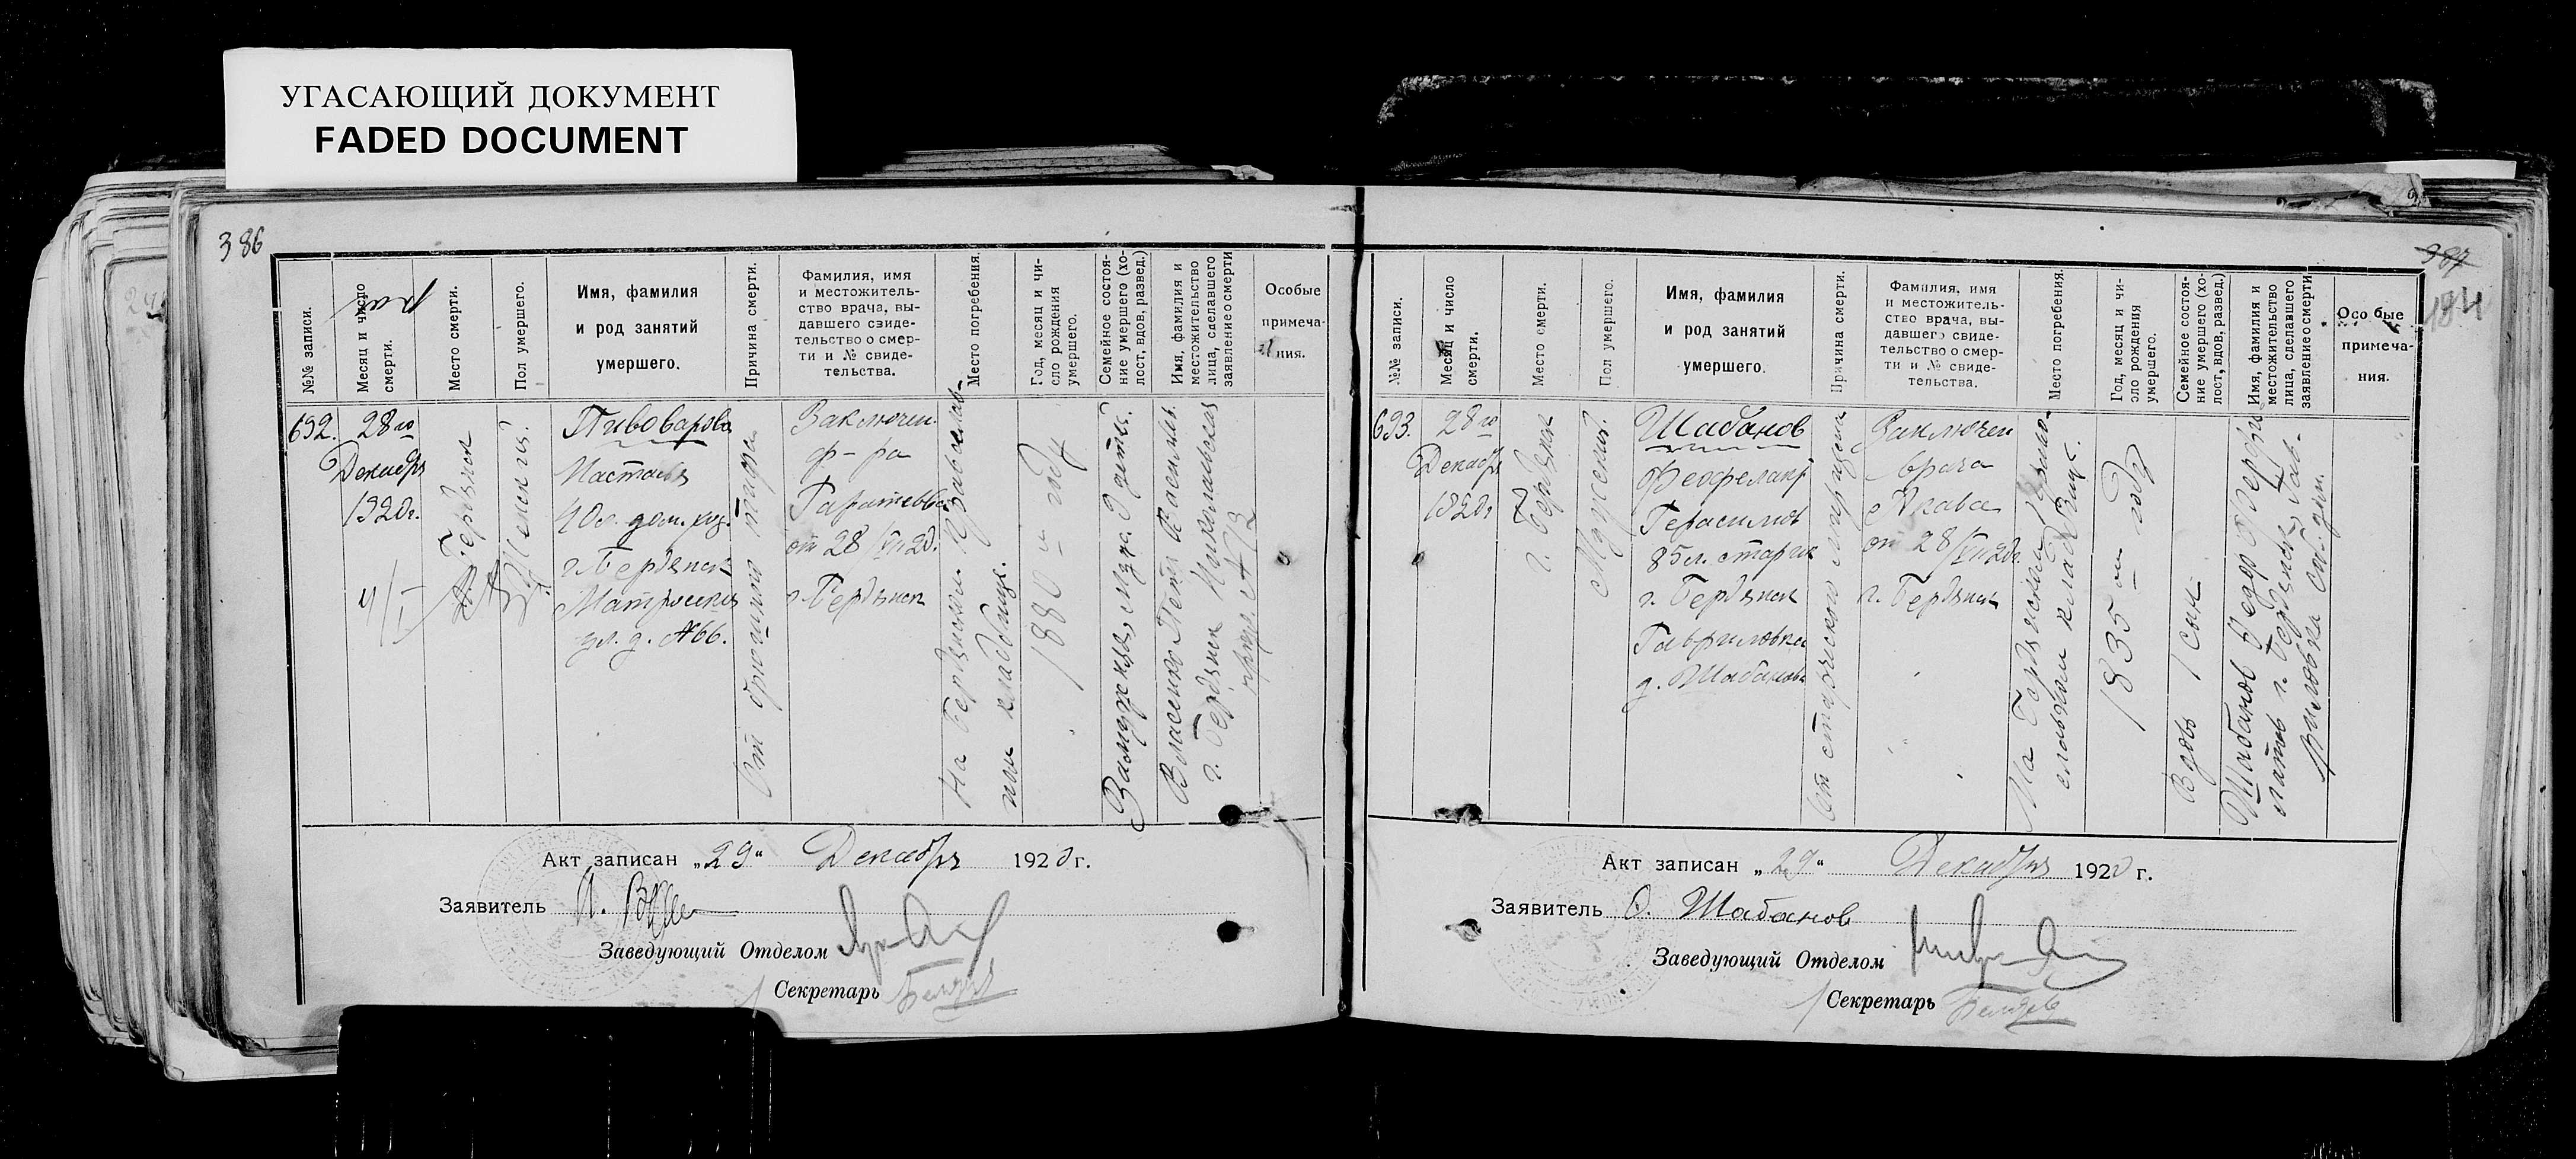 УГАСАЮЩИЙ ДОКУМЕНТ
FADED DOCUMENT
386
№№ записи.
Месяц и число
смерти.
Место смерти.
Пол умершего.
Имя, фамилия
и род занятий
умершего.
Причина смерти.
Фамилия, имя
и местожитель-
ство врача, вы-
давшего свиде-
тельство о смер-
ти и № свиде-
тельства.
Место погребения.
Год, месяц и чи-
сло рождения
умершего.
Семейное состоя-
ние умершего (хо-
лост, вдов, развед.)
Имя, фамилия и
местожительство
лица, сделавшего
заявление о смерти
Особые
примеча-
ния.
692.
28го
Декабря
1920г.
4/I
г. Бердянск
Женский
Пивоварова
Настасья
40л. дом. хоз.
г. Бердянск
Матросская
ул. д. №66.
От брюшного тифа
Заключен.
ф-ра
от 28/XII 20.
г. Бердянск
На Бердянском Православ-
ном кладбище.
1880 м году
Замужняя, муж, 2 дети.
Власенко Петр Василь.
г. Бердянск Николаевская
Акт записан „29" Декабря 1920г.
Заявитель
Заведующий Отделом
Секретарь
387
184
№№ записи.
Месяц и число
смерти.
Место смерти.
Пол умершего.
Имя, фамилия
и род занятий
умершего.
Причина смерти.
Фамилия, имя
и местожитель-
ство врача, вы-
давшего свиде-
тельство о смер-
ти и № свиде-
тельства.
Место погребения.
Год, месяц и чи-
сло рождения
умершего.
Семейное состоя-
ние умершего (хо-
лост, вдов, развед.)
Имя, фамилия и
местожительство
лица, сделавшего
заявление о смерти
Особые
примеча-
ния.
693.
28го
Декабря
1920г
г. Бердянск
Мужской
Шабанов
Феофелакт
Герасимов
85л. старик
г. Бердянск
Гавриловка
д. Шабанова
От старческого маразма
Заключен
врача
от 28/XII 20г.
г. Бердянск
На Бердянском Право-
славном кладбище.
1835 м году
Вдов 1 сын
Шабанов Федор Феофи-
лактов г. Бердянск, Гав-
риловка соб. дом.
Акт записан „29" Декабря 1920 г.
Заявитель Ф. Шабанов
Заведующий Отделом
Секретарь